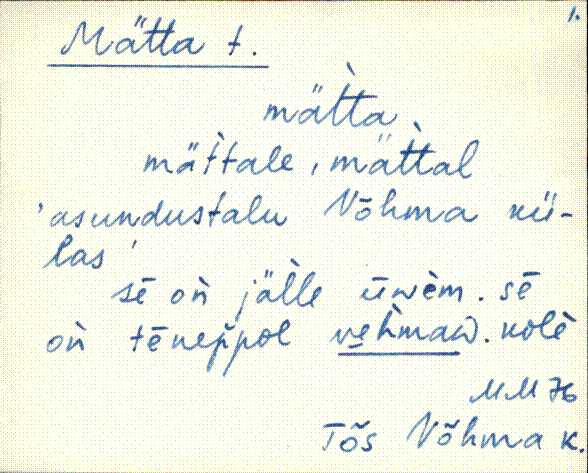 1.
Mätta t.
mät̀ta
mät̀tale, mät̀tal
'asundustalu Nõhma kü-
las'
sē oǹ jälle ūwèm. sē
oǹ tēneppol veh̀maw̆. kolè
MM 76
Tõs Nõhma k.